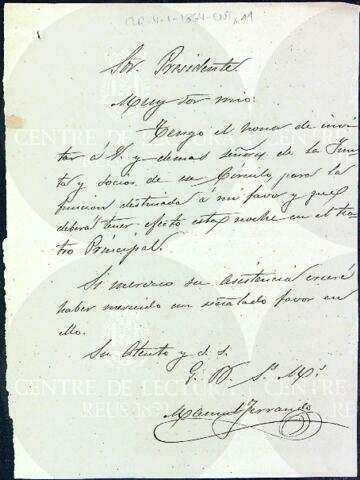 CLR-4-1-1864-ENE, M
Sor. Presidente.
Muy Sor mio:
Tengo el honor de invi
tar á V. y demas señores de la Jun
ta y socios de su Círculo, para la
funcion destinada á mi favor y que
deberá tener efecto esta noche en el tea
tro Principal.
Si merezco su asistencia creeré
haber merecido un señalado favor en
ello.
Su atento y S. S.
Q. B. Ss. Ms.
Manuel Ferrando
CENTRE DE LECTURA
REUS 1859